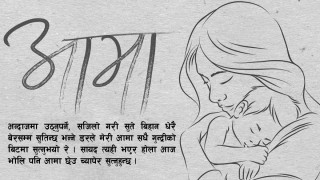 आमा
अन्दाजमा उठ्नुपर्ने, सजिलो गरी सुते बिहान धेरै
बेरसम्म सुतिन्छ भन्ने डरले मेरी आमा सधै गुन्द्रीको
बिटमा सुत्नुभयो रे । सायद त्यही भएर होला आज
भोलि पनि आमा छेउ च्यापेर सुत्नुहुन्छ ।